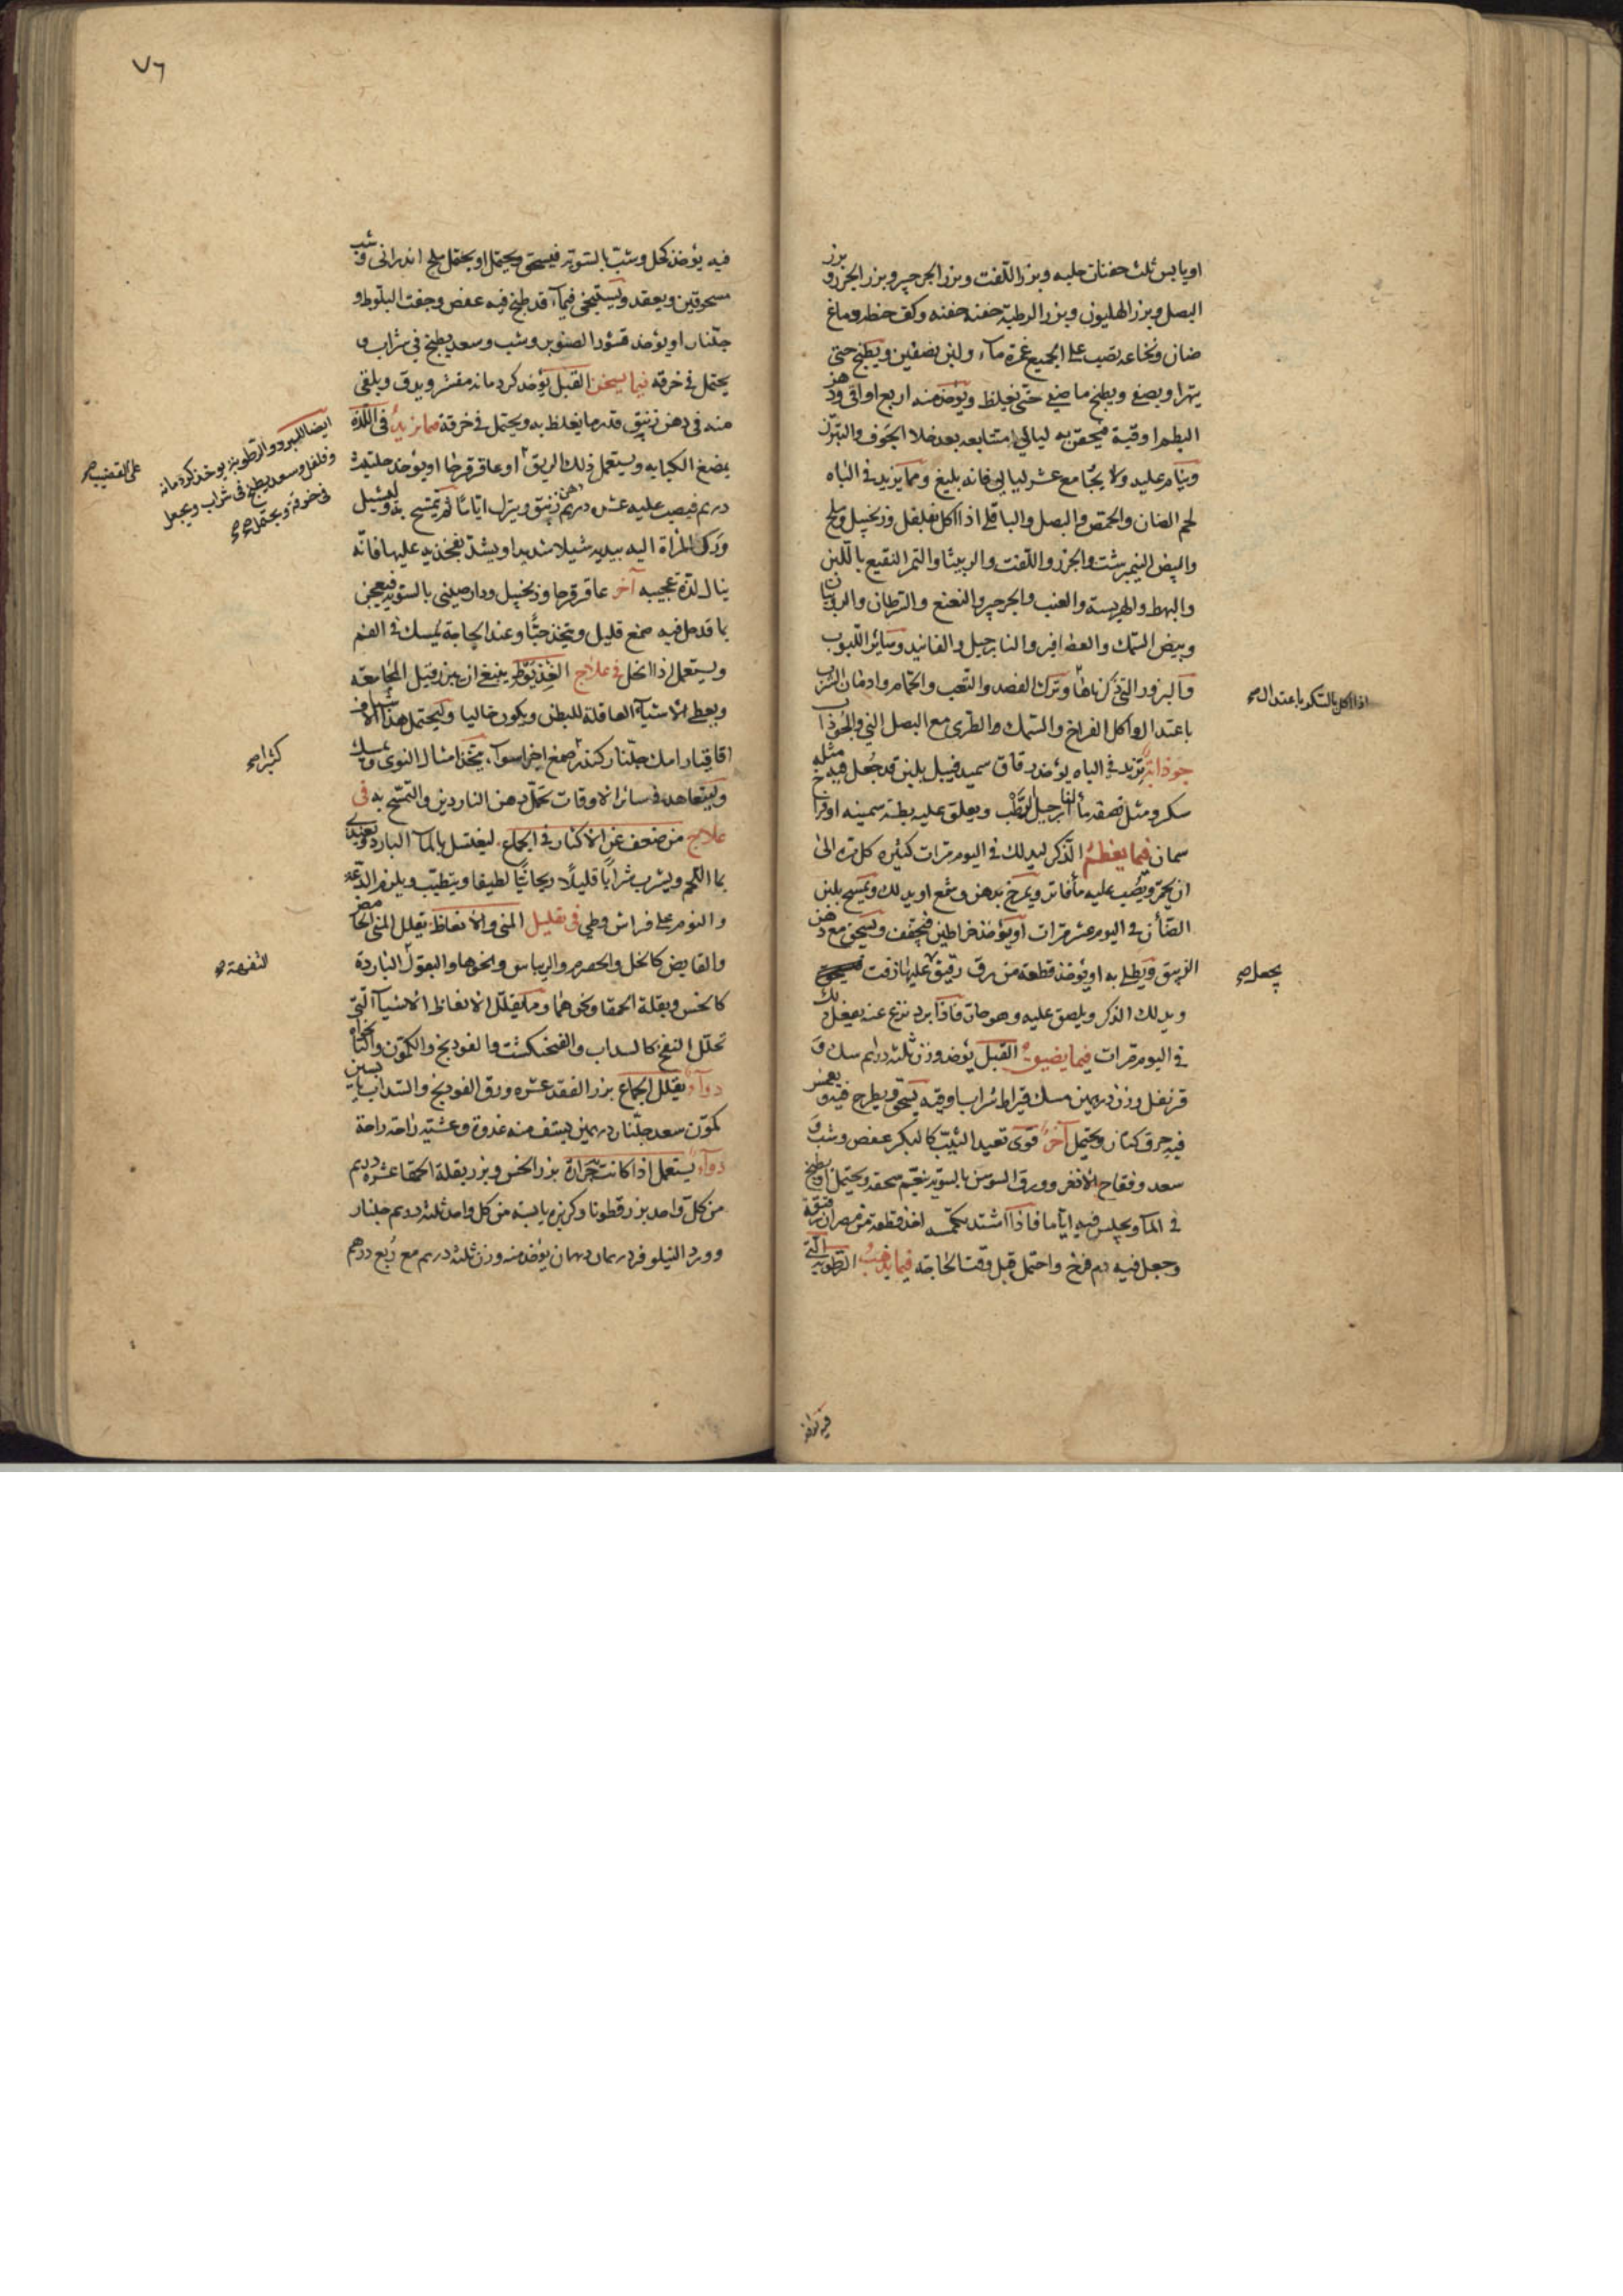 او يابس ثلث حفنات حلبه وبزر اللفت وبزر الجرجير وبزر الجزر وبزر
البصل وبزر الهليون وبزر الرطبة حفنه حفنه وكف حنطه ودماغ
ضان ونخاعه يصب على الجميع غمرة ماء ولبن نصفين ويطبخ حتى
يتهرا ويصفى ويطبخ ما صفى حتى يغلظ ويؤخذ منه اربع اواقى ودهن
البطم اوقية فيحقن به ليالى متتابعه بعد خلا الجوف والتبرز
وينام عليه ولا يجامع عشر ليالى فانه بليغ ومما يزيد فى الباه
لحم الضان والحمص والبصل والباقلى اذا اكل بفلفل وزنجبيل وملح
والبيض النيمبرشت والجزر واللفت والربيثا والتمر النقيع باللبن
والبهط والهريسة والعنب والجرجير والنعنع والسرطان والروبيان
وبيض السمك والعصافير والنارجيل والفانيد وسائر اللبوب
والبزور التى ذكرناها وترك الفصد والتعب والحمام وادمان الشرب
باعتدال واكل الفراخ والسمك الطرى مع البصل النى والجوذاب
جوذابة تزيد فى الباه يؤخذ رقاق سميد فيبل بلبن قد جعل فيه مثله
سكر ومثل نصفه ماء النارجيل الرطب ويعلق عليه بطة سمينه او فراخ
سمان فيما يعظم الذكر ليدلك فى اليوم مرات كثيره كل مره الى
ان يحمر ويصب عليه ماء فاتر ويمرخ بدهن وشمع او يدلك ويمسح بلبن
الضأن فى اليوم عشر مرات او يؤخذ خراطين فيجفف ويسحق مع دهن
الزيبق ويطلى به او يؤخذ قطعة من رق رقيق عليها زفت
ويدلك الذكر ويلصق عليه وهو حار فاذا برد نزع عنه يفعل ذلك
فى اليوم مرات فيما يضيق القبل يؤخذ وزن ثلثه دراهم سك و
قرنفل وزن درهمين مسك قيراط شراب اوقيه يسحق ويطرح فيه ويغمس
فيه خرق كتان ويحتمل آخر قوى تعيد الثيب كالبكر عفص وشب و
سعد وفقاح الاذخر وورق السوسن بالسويه ينعم سحقه ويحتمل او يطبخ
فى الماء ويجلس فيه اياما فاذا اشتد اخذ قطعة من مصران رقيقة
وجعل فيه دم فرخ واحتمل قبل وقت الحاجة فيما يذهب الرطوبة التى
اذا اكل بالسكر باعتدال صح
يجعل صح
فيه يؤخذ
٧٦
فيه يؤخذ كحل وشب بالسويه فيسحق ويحتمل او يحتمل ملح اندرانى وشب
مسحوقين ويعقد ويستنجى فيماء قد طبخ فيه عفص وجفت البلوط و
جلنار او يؤخذ قشور الصنوبر وشب وسعد يطبخ فى شراب و
يحتمل فى خرقه فيما يسخن القبل يؤخذ كردمانه مقشر ويدق ويلقى
منه فى دهن زنبق قدر ما يغلظ به ويحتمل فى خرقة مما يزيد فى اللذه
يمضغ الكبابه ويستعمل ذلك الريق او عاقرقرحا او يؤخذ حلتيت
درهم فيصب عليه عشره دراهم دهن زنبق ويترك اياما ثم يتمسح به وليشيل
ورك المراة اليه بيديه شيلا شديدا ويشد بفخذيه عليها فانه
ينال لذة عجيبه آخر عاقرقرحا وزنجبيل ودارصينى بالسويه فيعجن
بما قد حل فيه صمغ قليل ويتخذ حبا وعند الحاجة يمسك فى الفم
ويستعمل اذا انحل فى علاج العذيوط ينبغى ان يبرز قبل المجامعة
ويعطى الاشياء العاقلة للبطن ويكون خاليا وليحتمل هذا الشياف
اقاقيا رامك جلنار كندر صمغ اجزا سوا يتخذ امثال النوى ويمسك
ويتعاهد فى سائر الاوقات تحمل دهن الناردين والتمسح به فى
علاج من ضعف عن الاكثار فى الجماع ليغتسل بالماء البارد ويغتذى
بما اللحم ويشرب شرابا قليلا ريحانيا لطيفا ويتطيب ويلزم الدعة
والنوم على فراش وطى فى تقليل المنى والانعاظ يقلل المنى الحامض
والقابض كالخل والحصرم والريباس ونحوها والبقول الباردة
كالخس وبقلة الحمقا ونحوهما ومما يقلل الانعاظ الاشياء التى
تحلل النفخ كالسداب والفنجنكشت والفودنج والكمون والنانخواه
دواء يقلل الجماع بزر الفقد عشره ورق الفودنج والسداب يابسين
كمون سعد جلنار درهمين يستف منه غدوة وعشية راحة راحة
دواء يستعمل اذا كانت حرارة بزر الخس وبزر بقلة الحمقا عشره درهم
من كل واحد بزر قطونا وكزبره يابسة من كل واحد ثلثه درهم جلنار
وورد النيلوفر درهمان درهمان يؤخذ منه وزن ثلثه دراهم مع ربع درهم
ايضا للبرد والرطوبة يوخذ كردمانه
وفلفل وسعد يطبخ فى شراب ويجعل
فى خرقة ويحتمل صح
على القضيب صح
كثيرا صح